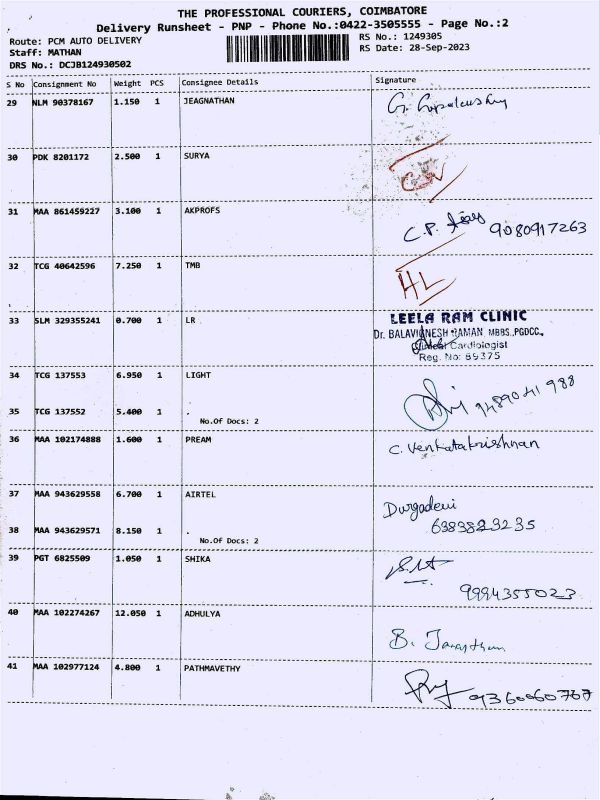 THE PROFESSIONAL COURIERS, COIMBATORE
Delivery Runsheet - PNP - Phone No.:0422-3505555 - Page No.:2
Route: PCM AUTO DELIVERY RS No.: 1249305
Staff: MATHAN RS Date: 28-Sep-2023
DRS No.: DCJB124930502
S No Consignment No Weight PCS Consignee Details Signature
29 NLM 90378167 1.150 1 JEAGNATHAN
30 PDK 8201172 2.500 1 SURYA
31 MAA 861459227 3.100 1 AKPROFS C.P. 9080917263
32 TCG 40642596 7.250 1 TMB HL
33 SLM 329355241 0.700 1 LR LEELA RAM CLINIC
Dr. BALAVIGNESH RAMAN MBBS.,PGDCC.,
Clinical Cardiologist
Reg. No: 89375
34 TCG 137553 6.950 1 LIGHT 9489041988
35 TCG 137552 5.400 1 .
No.Of Docs: 2
36 MAA 102174888 1.600 1 PREAM C. Venkatakrishnan
37 MAA 943629558 6.700 1 AIRTEL Durgadevi
6383823235
38 MAA 943629571 8.150 1 .
No.Of Docs: 2
39 PGT 6825509 1.050 1 SHIKA
9994355023
40 MAA 102274267 12.050 1 ADHULYA B.
41 MAA 102977124 4.800 1 PATHMAVETHY 9360060767